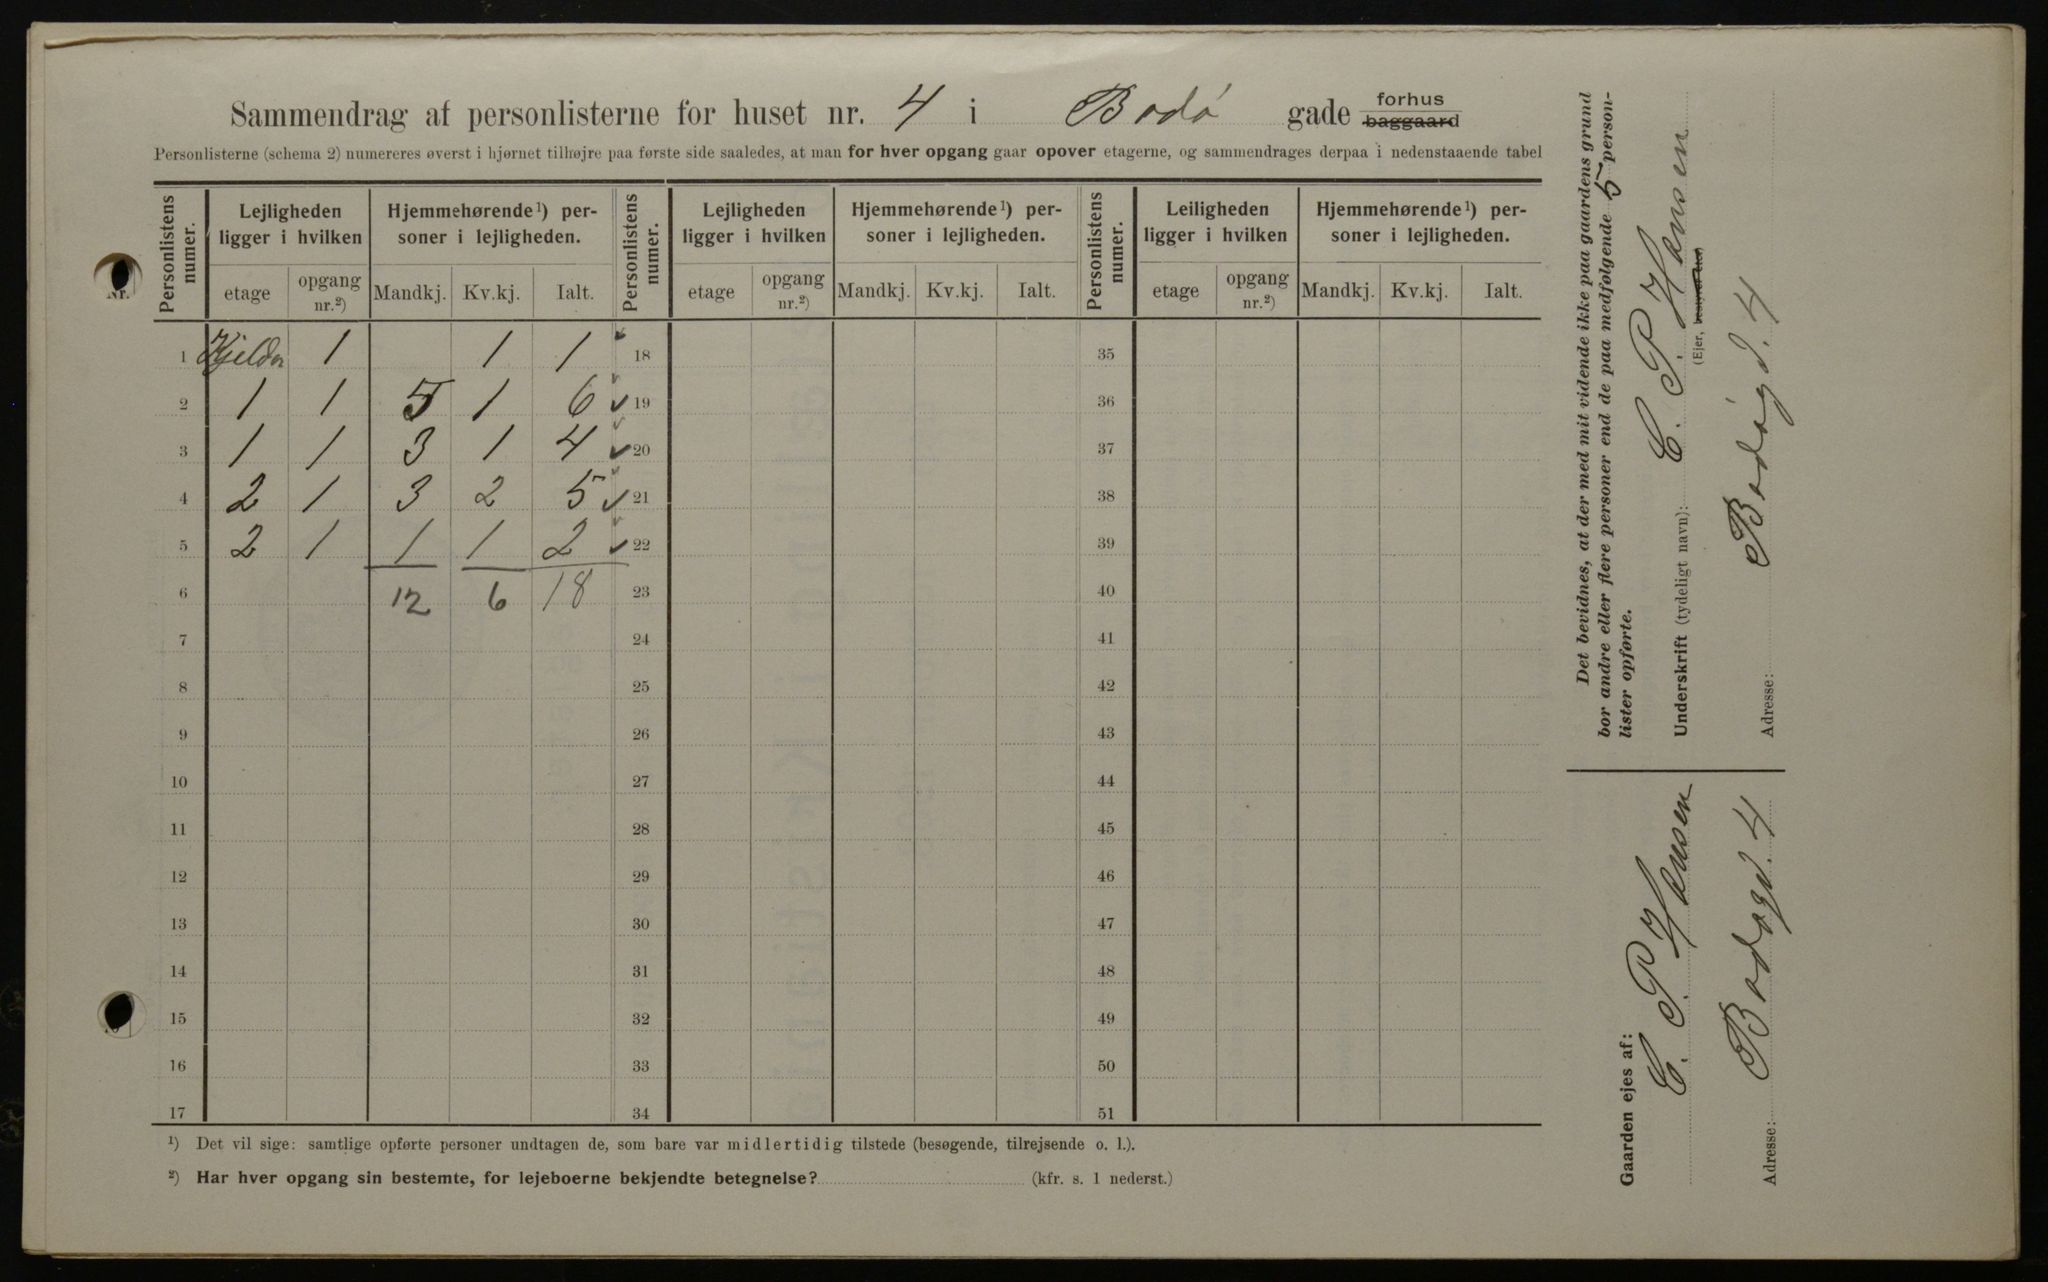 Sammendrag af personlisterne for huset nr. 4 i Bodø gade forhus baggaard
Personlisterne (schema 2) numereres øverst i hjørnet tilhøjre paa første side saaledes, at man for hver opgang gaar opover etagerne, og sammendrages derpaa i nedenstaaende tabel
Personlistens numer. Lejligheden ligger i hvilken Hjemmehørende¹) personer i lejligheden. Personlistens numer. Lejligheden ligger i hvilken Hjemmehørende¹) personer i lejligheden. Personlistens numer. Leiligheden ligger i hvilken Hjemmehørende¹) personer i lejligheden.
etage opgang nr.²) Mandkj. Kv.kj. Ialt. etage opgang nr.²) Mandkj. Kv.kj. Ialt. etage opgang nr.²) Mandkj. Kv.kj. Ialt.
1 Kjelder 1 1 1 18 35
2 1 1 5 1 6 ✓ 19 36
3 1 1 3 1 4 ✓ 20 37
4 2 1 3 2 5 ✓ 21 38
5 2 1 1 1 2 ✓ 22 39
6 12 6 18 23 40
7 24 41
8 25 42
9 26 43
10 27 44
11 28 45
12 29 46
13 30 47
14 31 48
15 32 49
16 33 50
17 34 51
¹) Det vil sige: samtlige opførte personer undtagen de, som bare var midlertidig tilstede (besøgende, tilrejsende o. l.).
²) Har hver opgang sin bestemte, for lejeboerne bekjendte betegnelse? (kfr. s. 1 nederst.)
Det bevidnes, at der med mit vidende ikke paa gaardens grund
bor andre eller flere personer end de paa medfølgende 5 person-
lister opførte.
Underskrift (tydeligt navn): C. P. Hansen
(Ejer, bestyrer etc.)
Adresse: Bodøgd. 4
Gaarden ejes af:
C. P. Hansen
Adresse: Bodøgd. 4